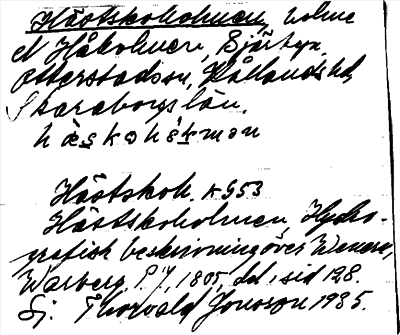 Hästskoholmen, holme
et Håkolmen, Bjärbyn,
Otterstads sn, Kållands hd,
Skaraborgs län.
hæskohȯlmən
Hästskoh. K G53
Hästskoholmen, Hydro-
grafisk beskrivning över Wenern,
Warberg, P. J, 1805, del 1 sid 128.
Sj. Thorvald Jonsson 1935.